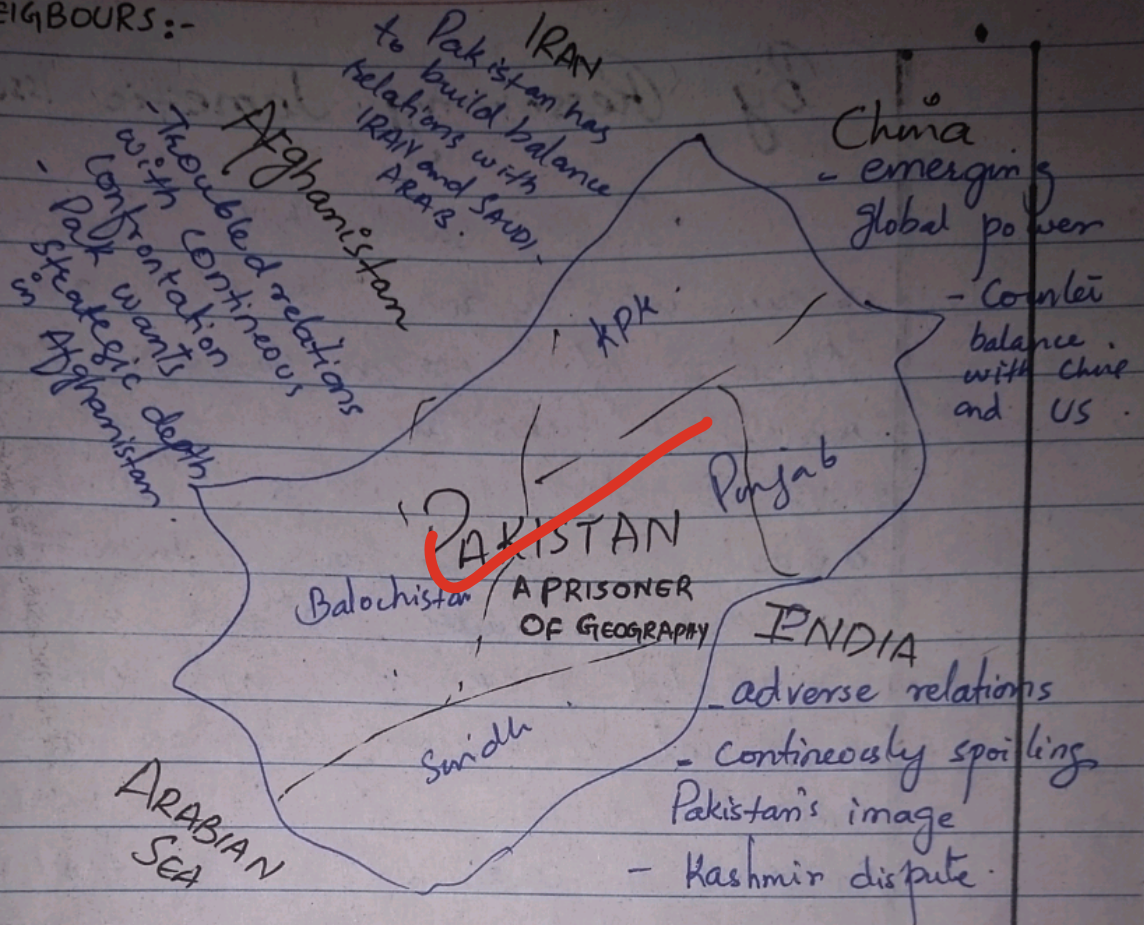 EIGBOURS:-
IRAN
to Pakistan has
to build balance
relations with
IRAN and SAUDI
ARAB.
Afghanistan
- Troubled relations
with contineous
confrontation
- Pak wants
strategic depth
in Afghanistan
China
- emerging
global power
- Counter
balance
with Chine
and US
KPK
Punjab
'PAKISTAN
A PRISONER
OF GEOGRAPHY
Balochistan
Sindh
ARABIAN
SEA
INDIA
- adverse relations
- Contineously spoiling
Pakistan's image
- Kashmir dispute.